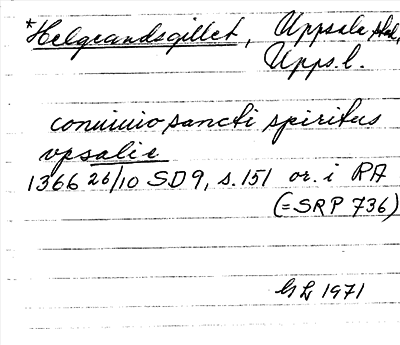 *Helgeandsgillet, Uppsala stad,
Upps.l.
conuiuio sancti spiritus
vpsalie
1366 26/10 SD9, s.151 or. i RA
(=SRP 736)
GL 1971